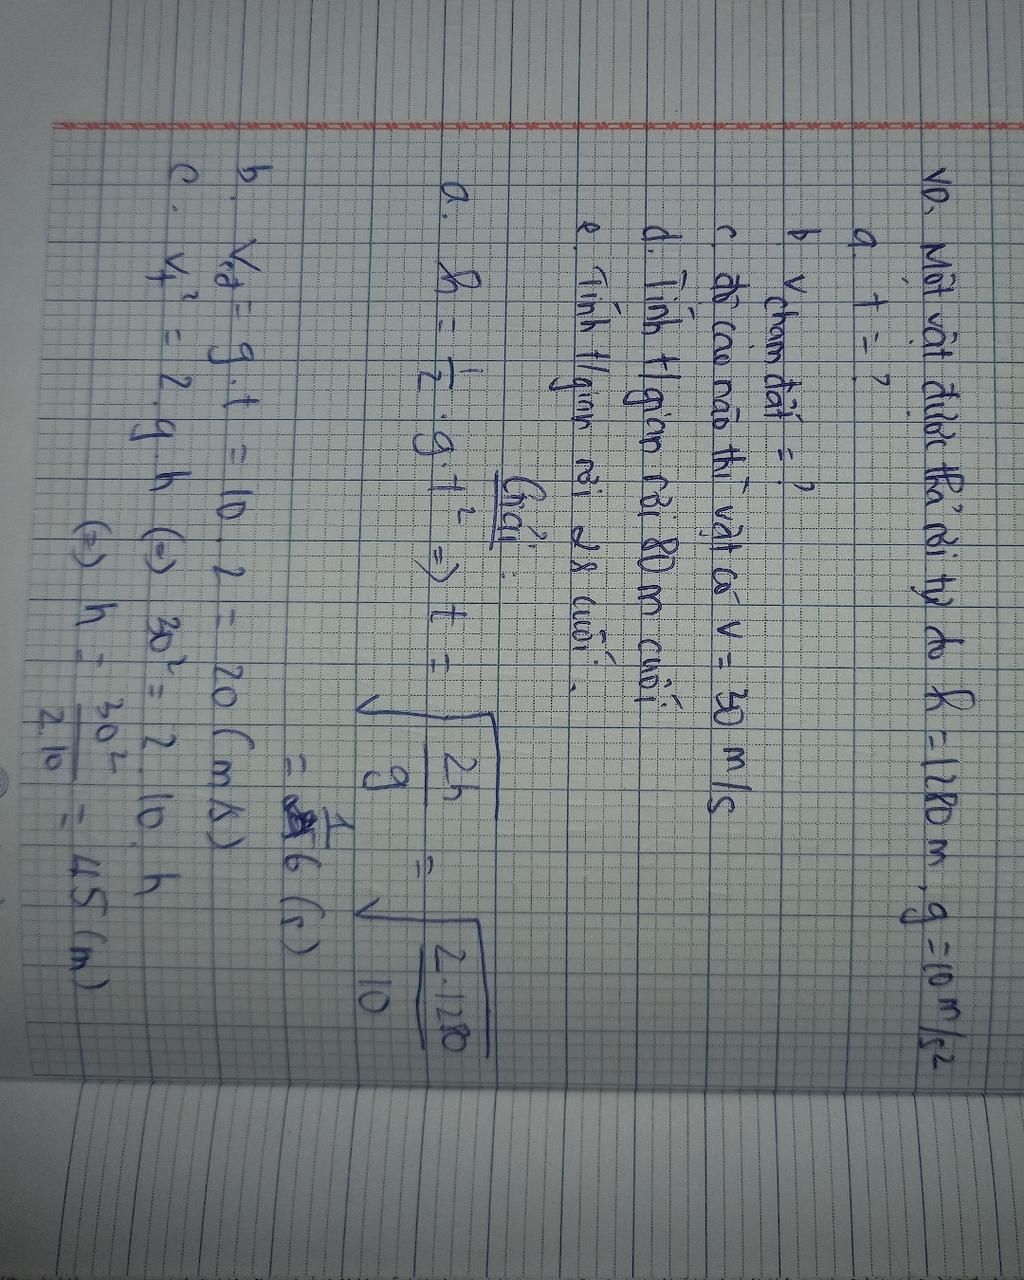 VD. Một vật được thả rơi tự do h = 1280 m, g = 10 m/s²
a. t = ?
b v chạm đất = ?
c. độ cao nào thì vật có v = 30 m/s
d. Tính t/gian rơi 80 m cuối
e. Tính t/gian rơi 2s cuối.
Giải:
a. h = 1/2 . g . t² => t = √(2h/g) = √(2.1280/10)
= 16 (s)
b. Vcđ = g . t = 10 . 2 = 20 (m/s)
c. vt² = 2 . g . h (=) 30² = 2 . 10 . h
(=) h = 30²/2.10 = 45 (m)